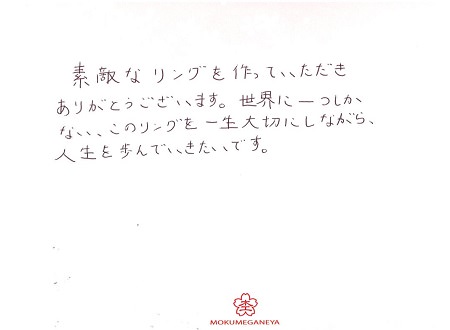 素敵なリングを作っていただき
ありがとうございます。世界に一つしか
ない、このリングを一生大切にしながら、
人生を歩んでいきたいです。
MOKUMEGANEYA